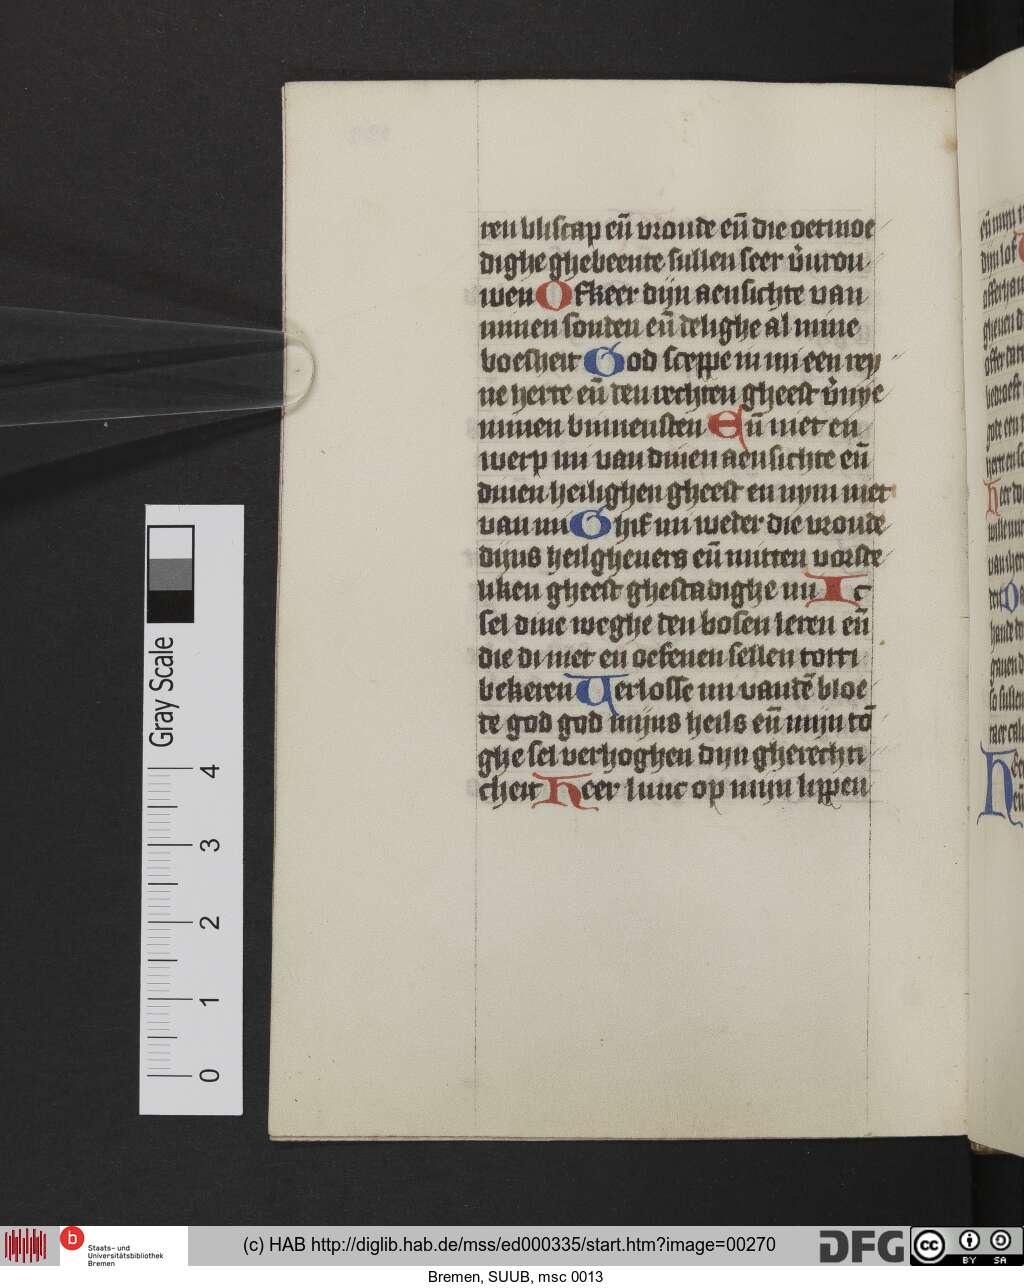 ten bliscap eñ vroude eñ die oetmoe
dighe ghebeente sullen seer v̄urou
wen Ofkeer dijn aensichte van
minen sonden eñ delighe al mine
boesheit God sceppe in mi een rey
ne herte eñ den rechten gheest v̄nye
minen binnensten Eñ niet en
werp mi van dinen aensichte eñ
dinen heilighen gheest en nym niet
van mi Ghif mi weder die vroude
dijns heilghevers eñ mitten vorste
liken gheest ghestadighe mi Ic
sel dine weghe den bosen leren eñ
die di niet en oefenen sellen tot ti
bekeren Verlosse mi van dē bloe
de god god mijns heils eñ mijn tō
ghe sel verhoghen dijn gherechti
cheit Heer luuc op mijn lippen
Gray Scale
4
3
2
1
0
b
Staats- und
Universitätsbibliothek
Bremen
(c) HAB http://diglib.hab.de/mss/ed000335/start.htm?image=00270
DFG
cc
BY SA
Bremen, SUUB, msc 0013